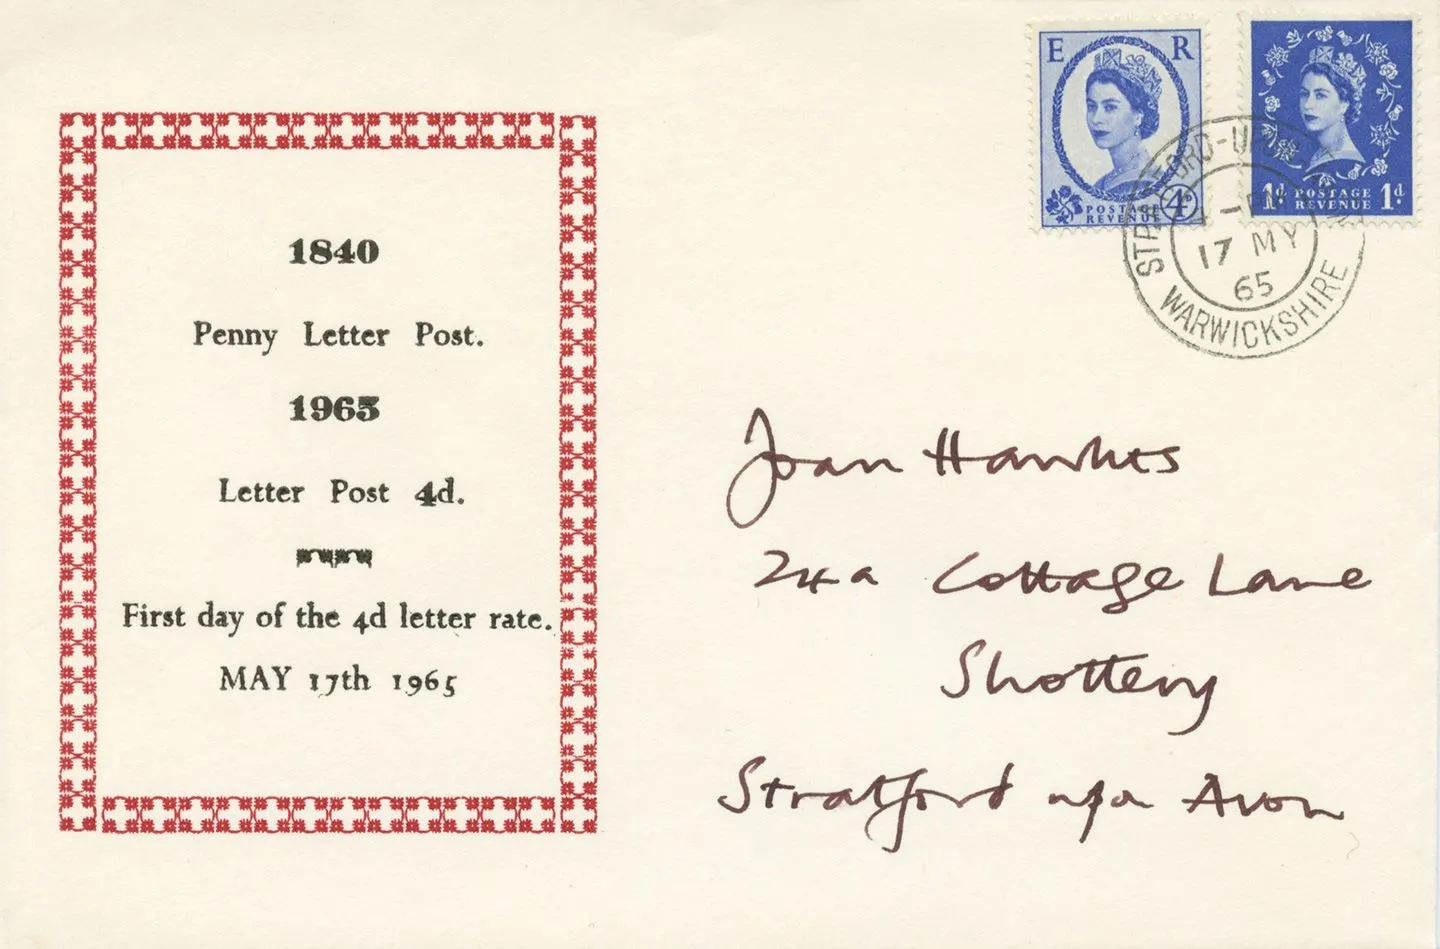 1840
Penny Letter Post.
1965
Letter Post 4d.
First day of the 4d letter rate.
MAY 17th 1965
E R
POSTAGE
REVENUE
4D
1D POSTAGE 1D
REVENUE
STRATFORD-U
17 MY
65
WARWICKSHIRE
Joan Hawkes
24a Cottage Lane
Shottery
Stratford upon Avon